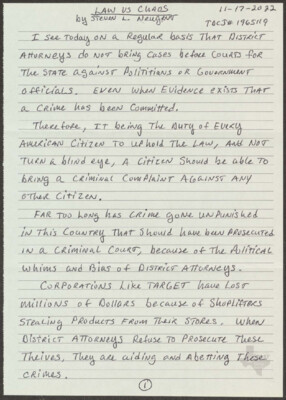 LAW VS CHAOS 11-17-2022
by Steven L. Neugent TDCJ# 1965119
I see today on a Regular basis that District
Attorneys do not bring Cases before Courts for
The State against Polititions or Government
officials. Even when Evidence exists that
a Crime has been Committed.
Therefore, It being the Duty of Every
American Citizen to uphold the Law, and not
turn a blind eye, A citizen should be able to
bring a Criminal Complaint against any
other Citizen.
Far too long has Crime gone unpunished
in this Country that should have been prosecuted
in a Criminal Court, because of the Political
whims and Bias of District Attorneys.
Corporations like Target have lost
millions of Dollars because of Shoplifters
Stealing products from their Stores. When
District Attorneys Refuse to Prosecute these
Theives, They are aiding and abetting these
crimes.
1